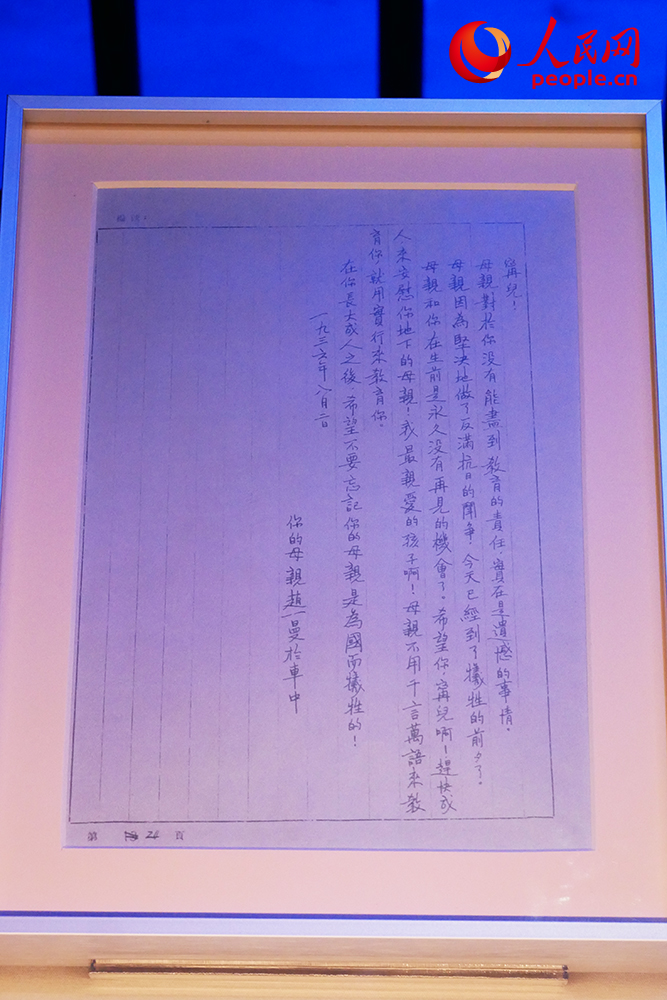 人民网
people.cn
甯兒！
母親對於你没有能盡到教育的責任，實在是遺憾的事情。
母親因為堅决地做了反滿抗日的鬬爭，今天已經到了犧牲的前夕了。
母親和你在生前是永久没有再見的機會了。希望你，甯兒啊！趕快成
人來安慰你地下的母親！我最親愛的孩子啊！母親不用千言萬語來教
育你，就用實行來教育你。
在你長大成人之後，希望不要忘記你的母親是為國而犧牲的！
一九三六年八月二日
你的母親趙一曼於車中
第 頁